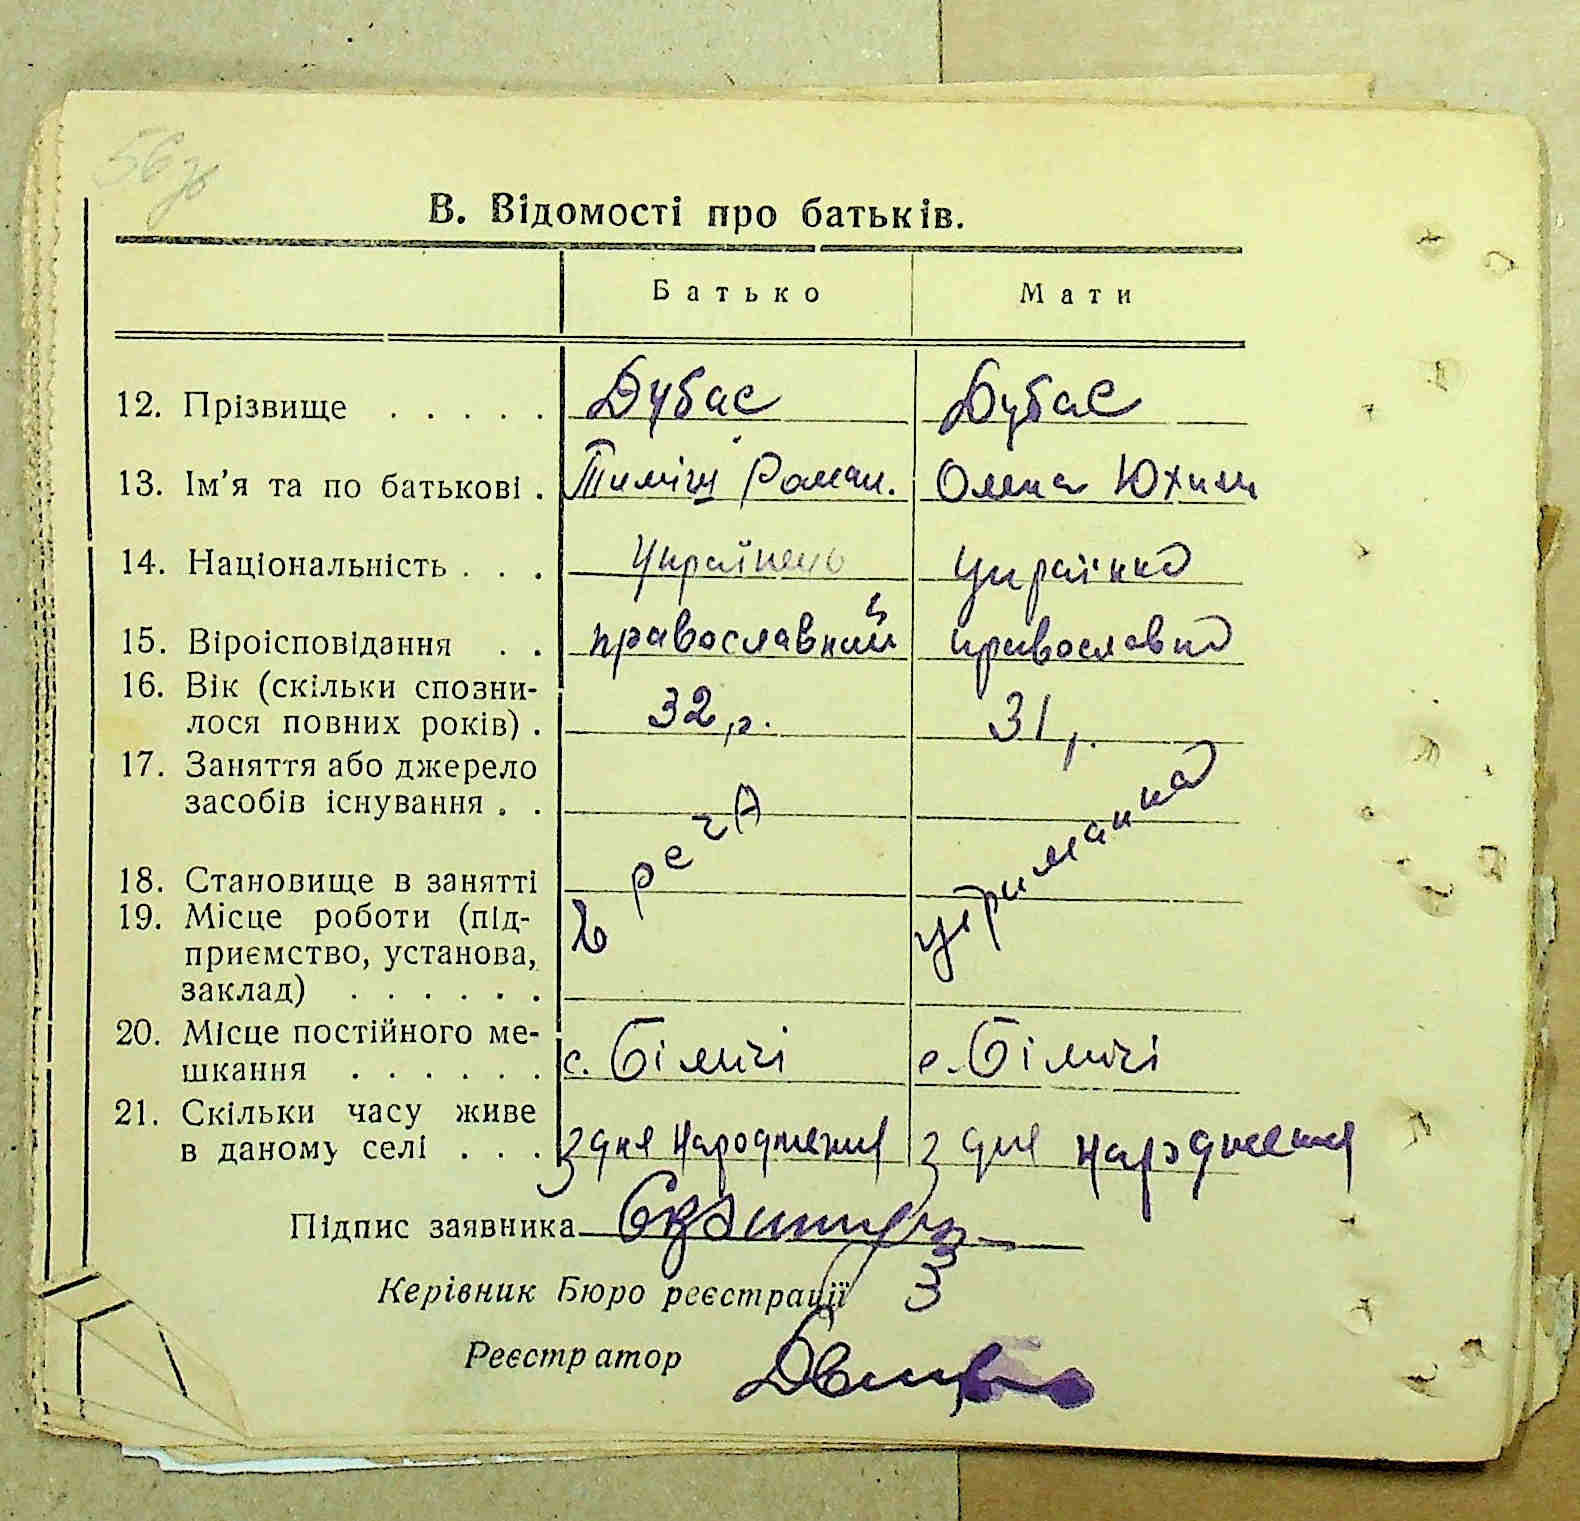 56 зв
В. Відомості про батьків.
Батько Мати
12. Прізвище . . . . . Дубас Дубас
13. Ім'я та по батькові . Тиміш Роман. Олена Юхим
14. Національність . . . Українець українка
15. Віроісповідання . . православний православна
16. Вік (скільки спозни-
лося повних років) . 32 р. 31 р.
17. Заняття або джерело
засобів існування . .
18. Становище в занятті
19. Місце роботи (під-
приємство, установа,
заклад) . . . . . .
В РСЧА утриманка
20. Місце постійного ме-
шкання . . . . . . с. Біличі с. Біличі
21. Скільки часу живе
в даному селі . . . з дня народження з дня народження
Підпис заявника
Керівник Бюро реєстрації З
Реєстратор